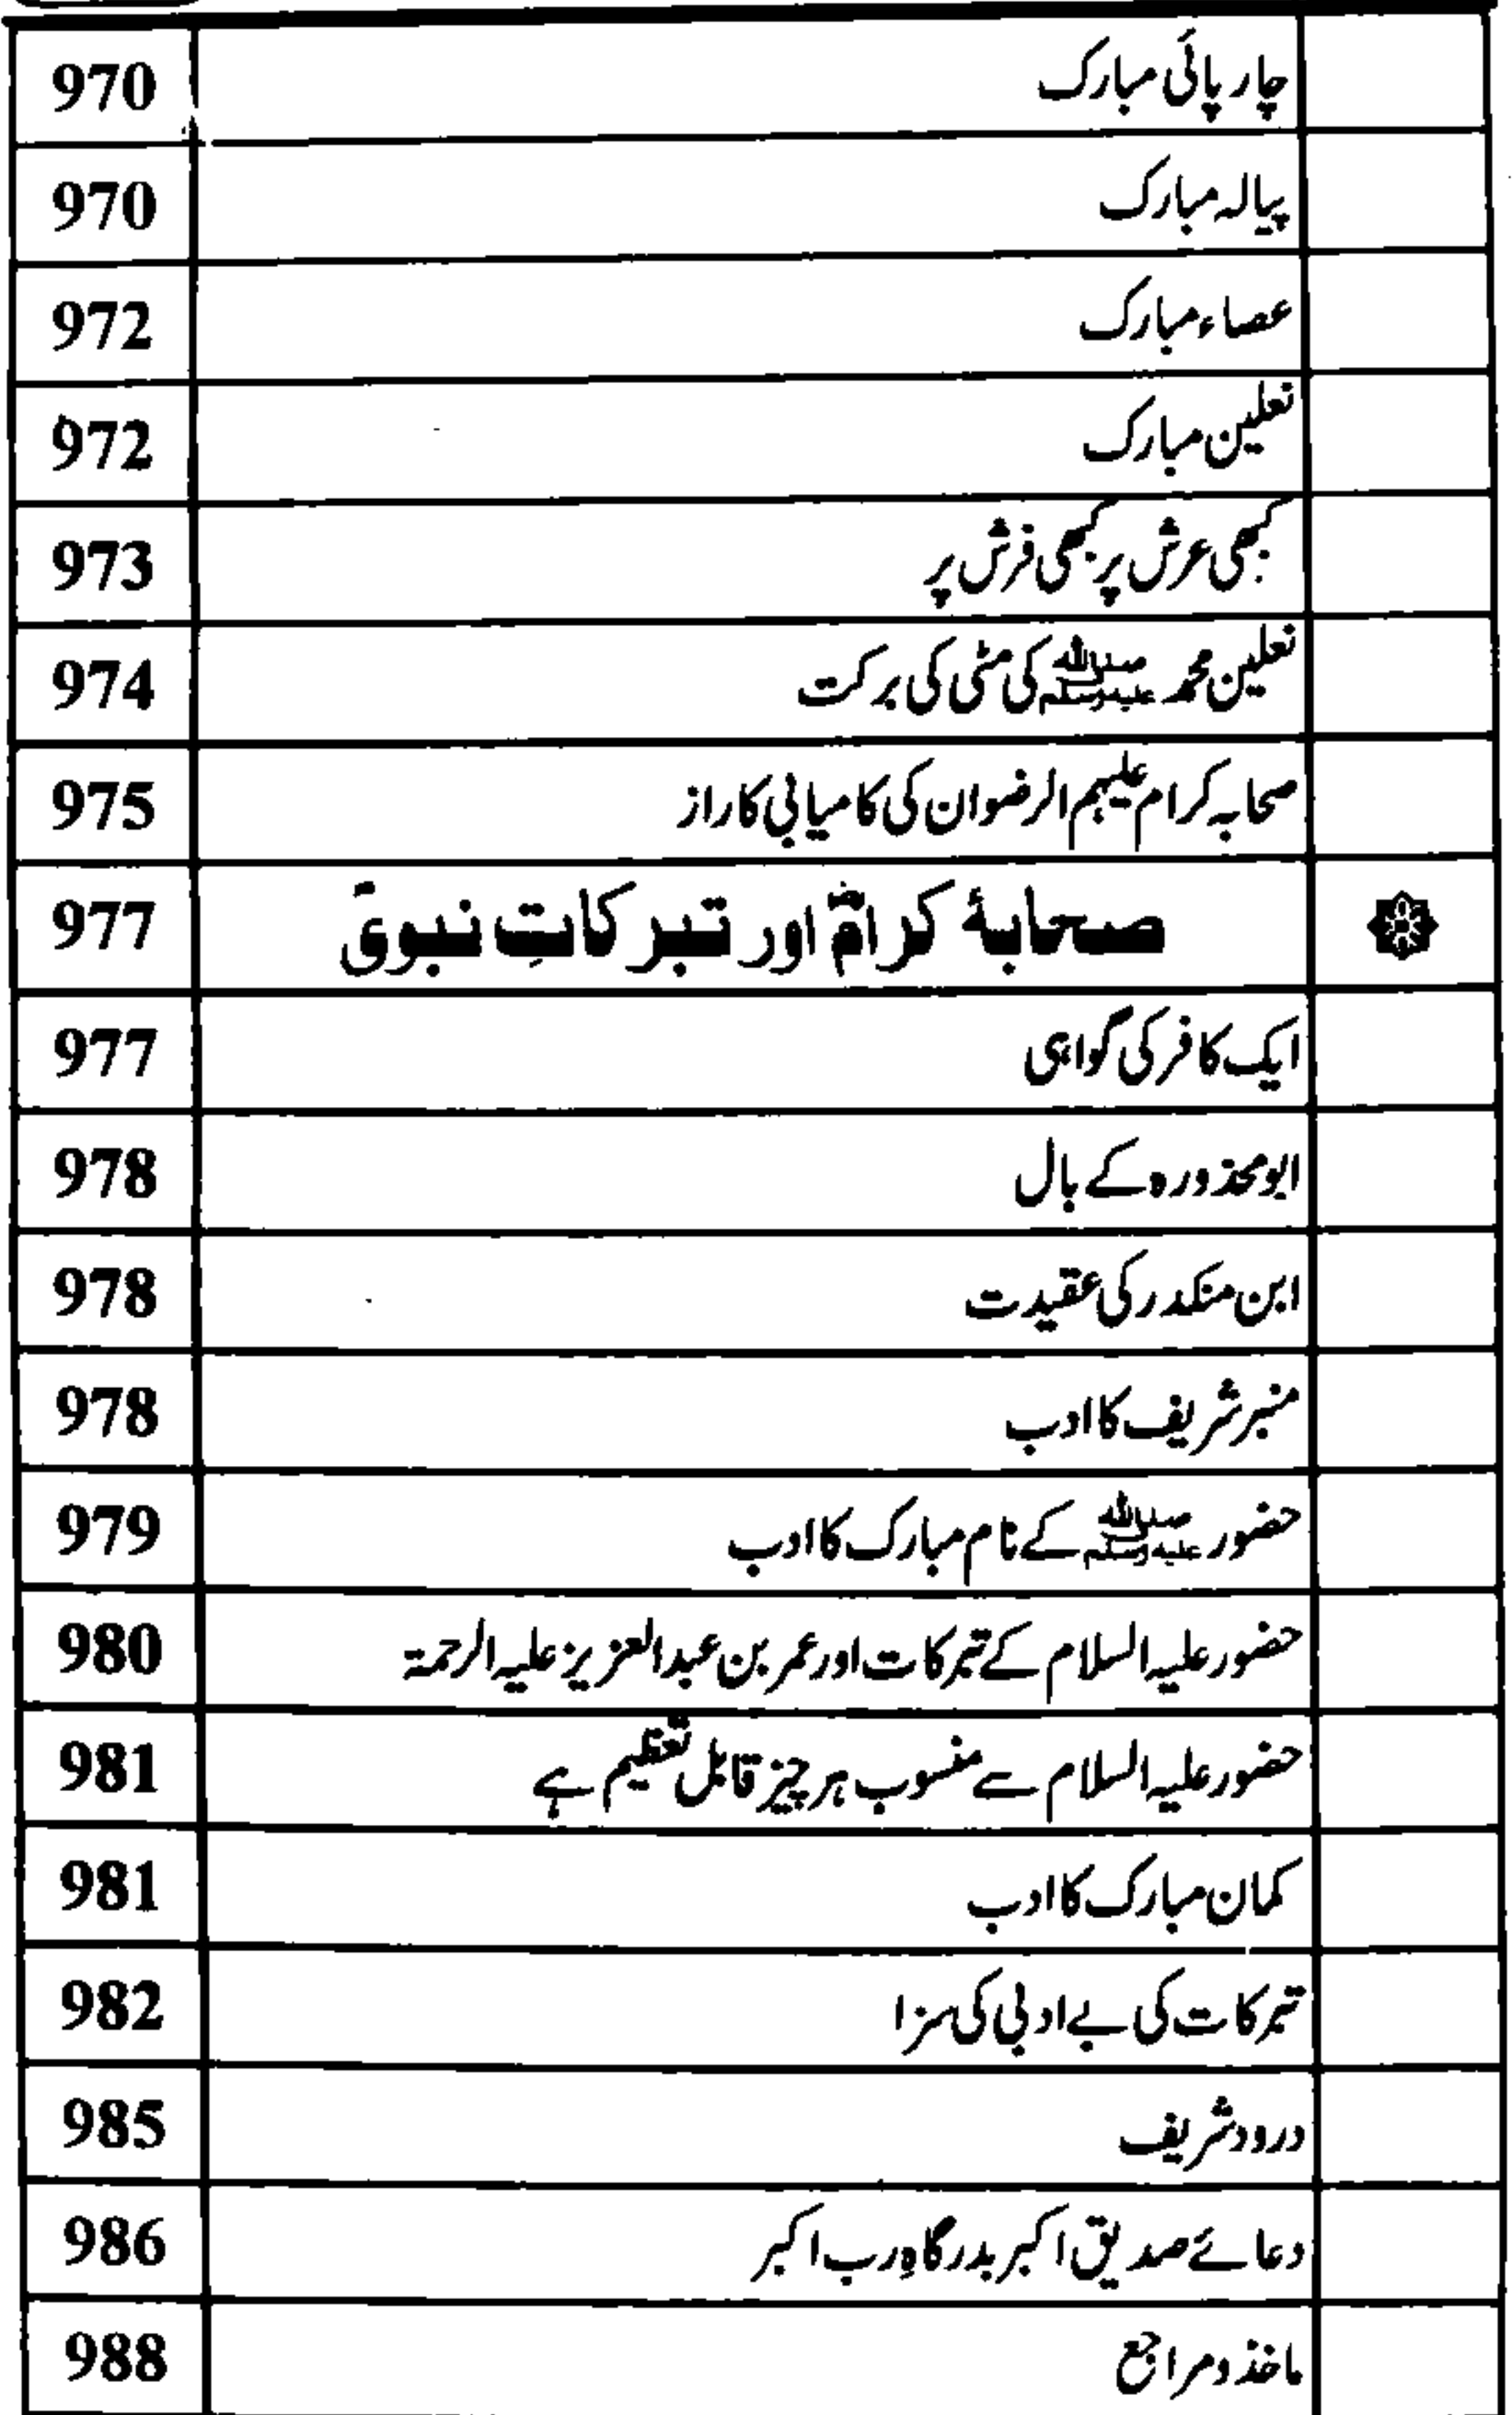 چار پائی مبارک 970
پیالہ مبارک 970
عصاء مبارک 972
نعلین مبارک 972
کبھی عرش پر کبھی فرش پر 973
نعلین محمد صلى الله عليه وسلم کی مٹی کی برکت 974
صحابہ کرام علیہم الرضوان کی کامیابی کا راز 975
صحابۂ کرامؓ اور تبرکاتِ نبویؐ 977
ایک کافر کی گواہی 977
ابومحذورہ کے بال 978
ابن منکدر کی عقیدت 978
منبر شریف کا ادب 978
حضور صلى الله عليه وسلم کے نام مبارک کا ادب 979
حضور علیہ السلام کے تبرکات اور عمر بن عبدالعزیز علیہ الرحمۃ 980
حضور علیہ السلام سے منسوب ہر چیز قابل تعظیم ہے 981
کمان مبارک کا ادب 981
تبرکات کی بے ادبی کی سزا 982
درود شریف 985
دعائے صدیق اکبر بدرگاہِ رب اکبر 986
ماخذ و مراجع 988